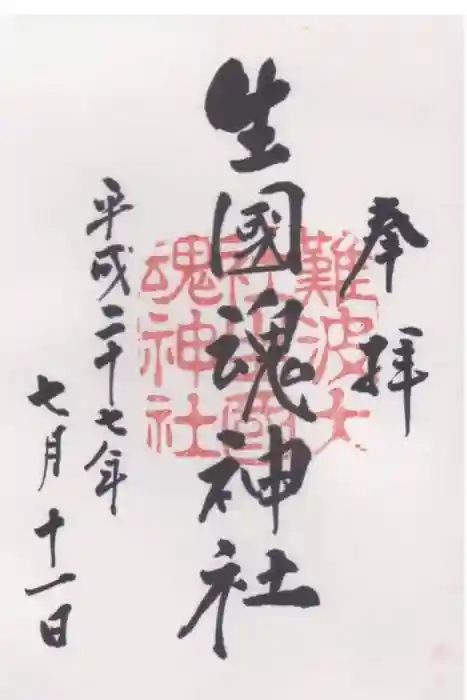 奉拝
生國魂神社
難波大
社生國
魂神社
平成二十七年
七月十一日